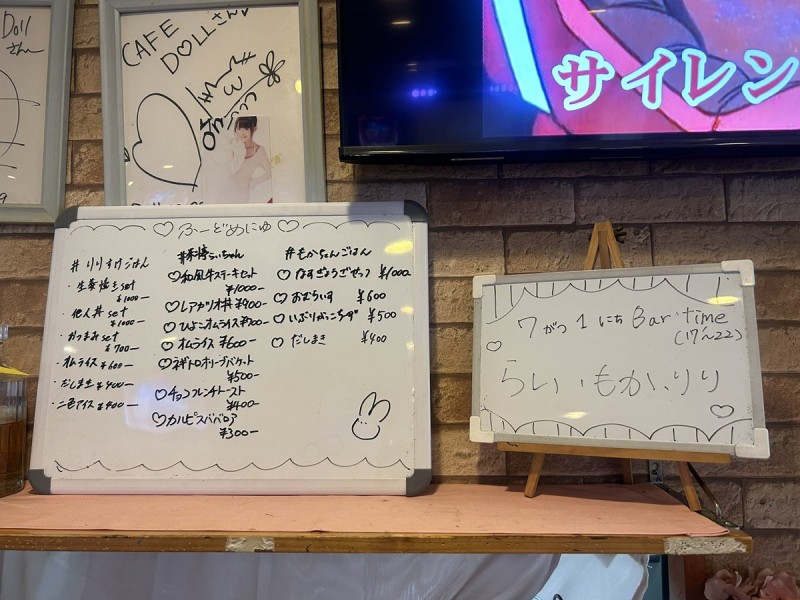 Doll
さん
CAFE
DOLLさん
サイレン
♡ ふーどめにゅ ♡
# りりすけごはん
・生姜焼きset
¥1000-
・他人丼set
¥1000-
・おつまみset
¥700-
・オムライス ¥600-
・だしま生 ¥400-
・二色アイス ¥400-
らいちゃん
♡和風牛ステーキセット
¥1000-
♡レアカツオ丼 ¥900-
♡ひよこオムライス ¥700-
♡オムライス ¥600-
♡ネギトロオリーブバケット
¥500-
♡チョコフレンチトースト
¥400-
♡カルピスババロア
¥300-
#もかちゃんごはん
♡ なすぎょうざせっつ ¥1000
♡ おむらいす ¥600
♡ いぶりがっこちーず ¥500
♡ だしまき ¥400
7がつ1にち Bar・time
(17〜22)
らい、もか、りり